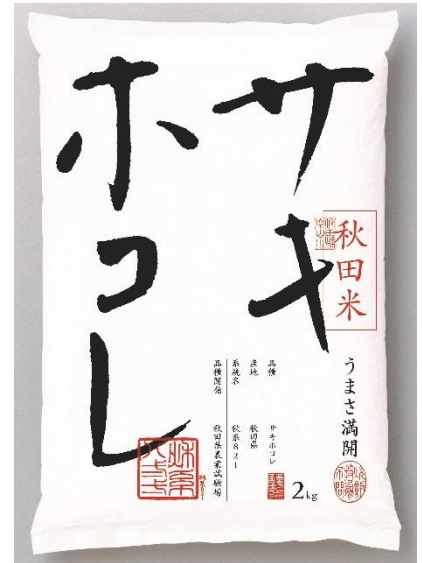 サキ
ホコレ
秋田米
うまさ満開
品種 サキホコレ
産地 秋田県
系統名 秋系821
品種開発 秋田県農業試験場
2kg
秋系821